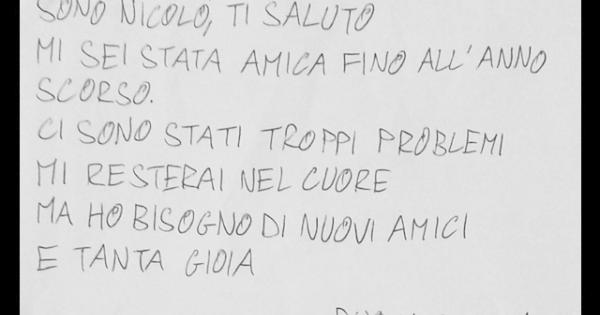 SONO NICOLO, TI SALUTO
MI SEI STATA AMICA FINO ALL'ANNO
SCORSO.
CI SONO STATI TROPPI PROBLEMI
MI RESTERAI NEL CUORE
MA HO BISOGNO DI NUOVI AMICI
E TANTA GIOIA